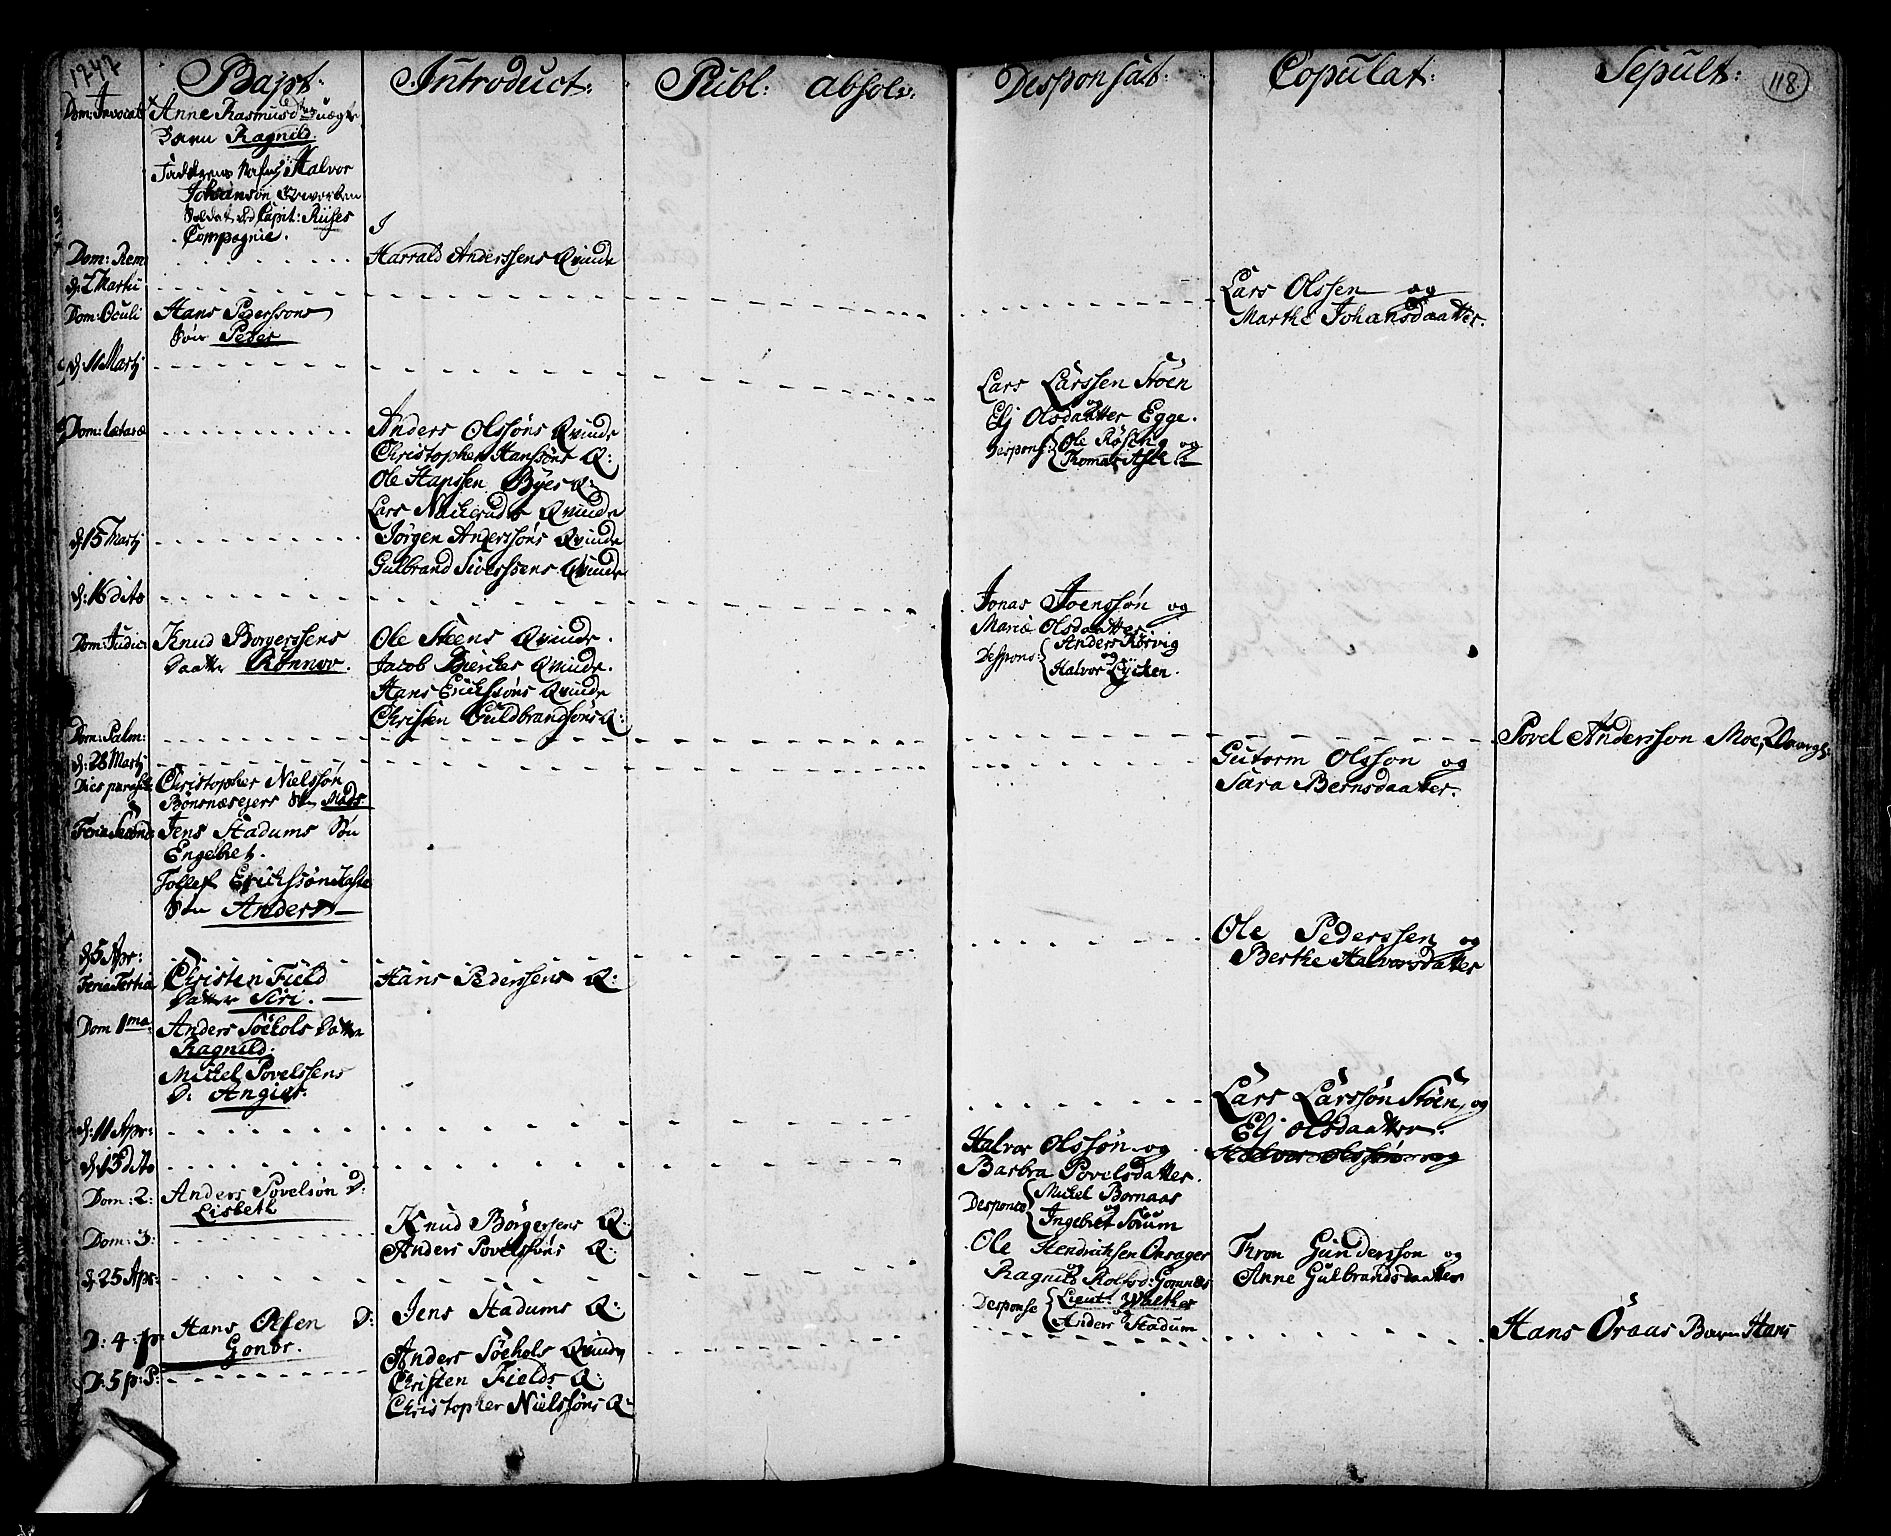 1747
Bapt:
Introduct:
Publ: absolv:
Desponsat:
Copulat:
Sepult:
118.
Dom: Invocat
Anne Rasmusd uægte
Barn Ragnild.
Fadderens Nafn Halvor
Johansøn
Soldat ved Capit: Ruses
Compagnie.
Dom: Rem
Harrald Anderssens Qvinde
d. 2 Martii
Lars Olssen og
Marthe Johansdaatter.
Dom: Oculi
Hans Pederssons
søn Peder
d. 11 Martj
Lars Larssen Støen
og
Elj Olsdaatter Egge.
Despons: Ole Røsing og
Thomas Ask
Dom: Lætare
Anders Olssøns Qvinde
Christopher Hanssøns Q:
Ole Hanssen Byes Q:
Lars Nackeruds Qvinde
d. 15 Martj
Jørgen Anderssøns Qvinde
Gulbrand Siverssens Qvinde
d: 16 dito
Jonas Joenssøn og
Marie Olsdaatter
Despons: Anders Rørvig
og
Halvor Lycken.
Dom: Judic:
Knud Borgerssens
Daatter Rønnov.
Ole Steens Qvinde.
Jacob Bierckes Qvinde.
Hans Erickssøns Qvinde
Christen Guldbrandsøns Q:
Dom: Palm:
Povel Andersson Moe,
d. 28 Martj
Gutorm Olsson og
Sara Bernsdaatter.
Dies
Christopher Nielssøn
Bønsnæsejers Søn Mads
Feria Secund
Jens Stadums Søn
Engebret.
Tollef Erickssøn
Søn Anders
d. 5 Apr:
Ole Pederssen og
Berthe Halvorsdatter
Feria Tertia
Christen Field
Datter Siri.
Hans Pederssens Q:
Dom 1ma:
Anders Søehols Datter
Ragnild.
Michel Povelssens
D: Angier.
d: 11 Apr:
Lars Larssøn Støen, og
Elj Olsdaatter.
d. 13 dito
Halvor Olssøn og
Barbra Povelsdatter.
Desponso Michel Bornaas
og
Ingebret Sørum
Halvor Olssøn og
Dom: 2:
Anders Povelsøn D:
Lisbeth
Dom: 3:
Knud Børgersens Q:
Anders Povelssøns Q:
d. 25 Apr:
Ole Hendrichsen Onsager
og
Ragnild Rolfsd: Gomnæs
Desponse Lieut: Walther
og
Anders Stadum
Thron Gundersson og
Anne Gulbrandsdaatter
D: 4: p:
Hans Olsen D:
Gonor.
Jens Stadums Q:
Hans Øraas Barn Hans
D: 5 p: P:
Anders Søehols Qvinde
Christen Fields Q:
Christopher Nielssøns Q: